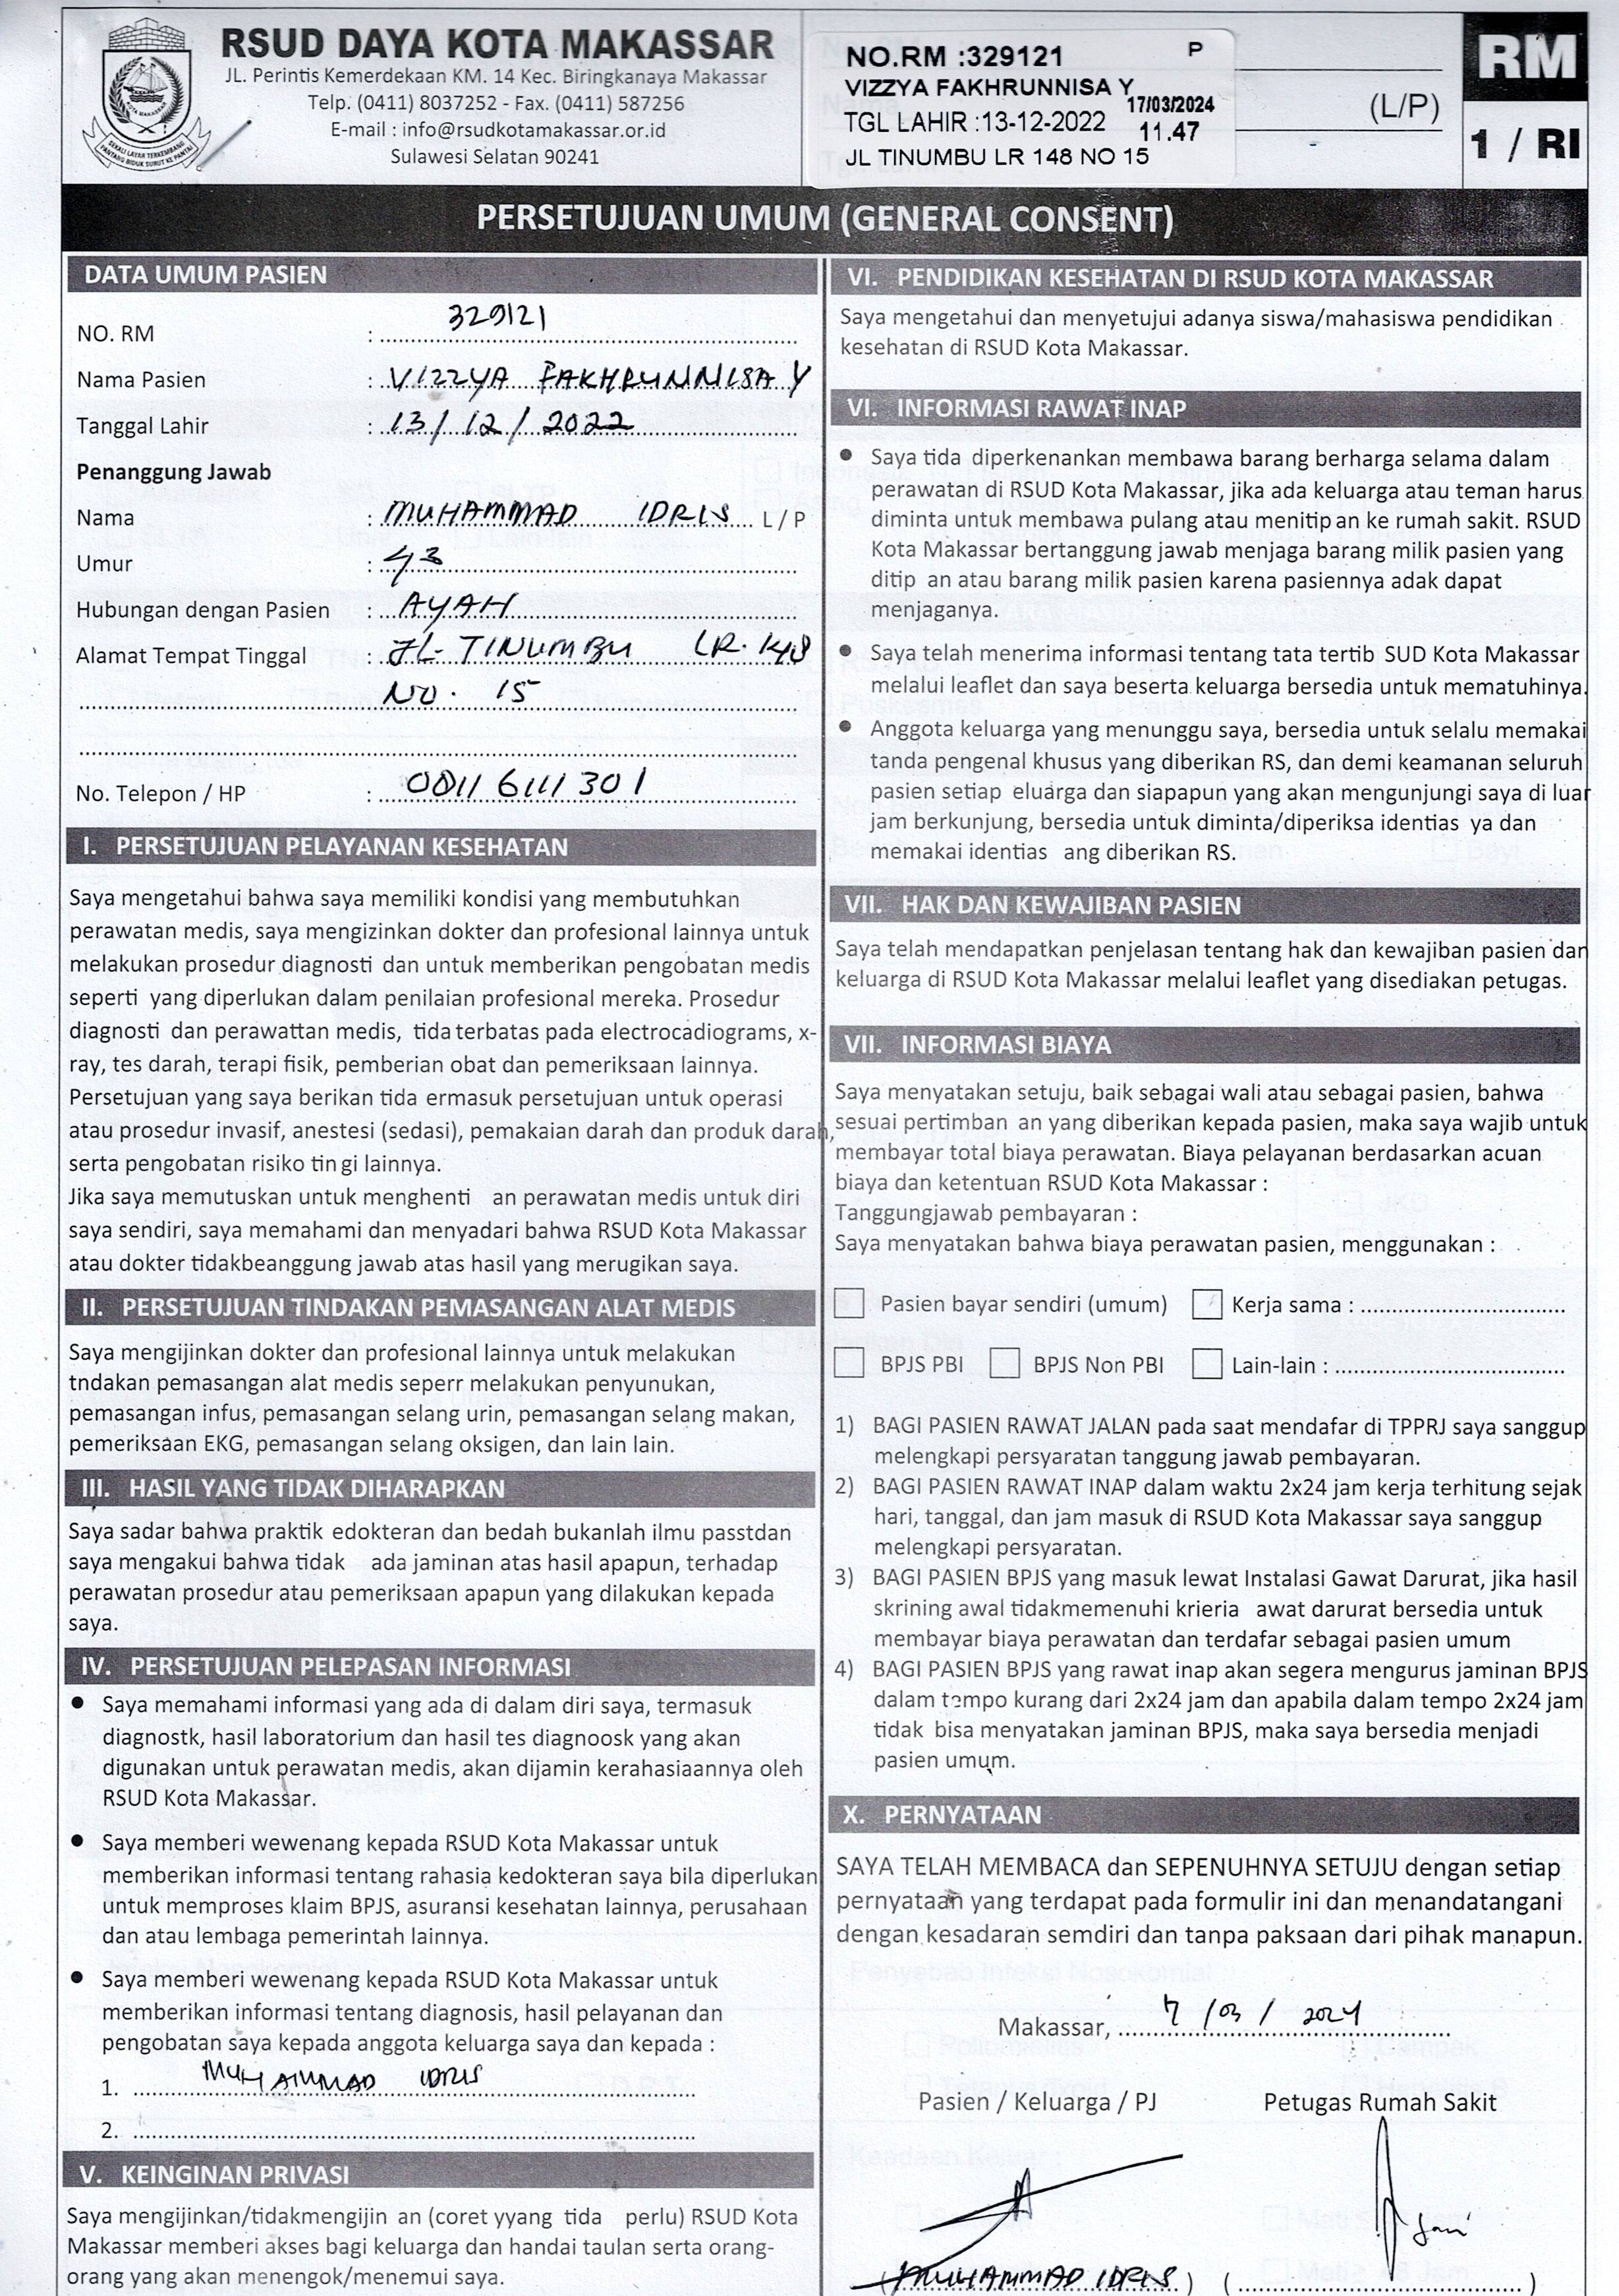 RSUD DAYA KOTA MAKASSAR
JL. Perintis Kemerdekaan KM. 14 Kec. Biringkanaya Makassar
Telp. (0411) 8037252 - Fax. (0411) 587256
E-mail : info@rsudkotamakassar.or.id
Sulawesi Selatan 90241
NO.RM :329121 P
VIZZYA FAKHRUNNISA Y
17/03/2024
TGL LAHIR :13-12-2022 11.47
JL TINUMBU LR 148 NO 15
(L/P)
RM
1 / RI
PERSETUJUAN UMUM (GENERAL CONSENT)
DATA UMUM PASIEN
NO. RM : 329121
Nama Pasien : VIZZYA FAKHRUNNISA Y
Tanggal Lahir : 13/12/2022
Penanggung Jawab
Nama : MUHAMMAD IDRIS L / P
Umur : 43
Hubungan dengan Pasien : AYAH
Alamat Tempat Tinggal : JL. TINUMBU LR. 148
NO. 15
No. Telepon / HP : 0811 6111 301
I. PERSETUJUAN PELAYANAN KESEHATAN
Saya mengetahui bahwa saya memiliki kondisi yang membutuhkan
perawatan medis, saya mengizinkan dokter dan profesional lainnya untuk
melakukan prosedur diagnosti dan untuk memberikan pengobatan medis
seperti yang diperlukan dalam penilaian profesional mereka. Prosedur
diagnosti dan perawattan medis, tida terbatas pada electrocadiograms, x-
ray, tes darah, terapi fisik, pemberian obat dan pemeriksaan lainnya.
Persetujuan yang saya berikan tida ermasuk persetujuan untuk operasi
atau prosedur invasif, anestesi (sedasi), pemakaian darah dan produk darah,
serta pengobatan risiko tin gi lainnya.
Jika saya memutuskan untuk menghenti an perawatan medis untuk diri
saya sendiri, saya memahami dan menyadari bahwa RSUD Kota Makassar
atau dokter tidakbeanggung jawab atas hasil yang merugikan saya.
II. PERSETUJUAN TINDAKAN PEMASANGAN ALAT MEDIS
Saya mengijinkan dokter dan profesional lainnya untuk melakukan
tndakan pemasangan alat medis seperr melakukan penyunukan,
pemasangan infus, pemasangan selang urin, pemasangan selang makan,
pemeriksaan EKG, pemasangan selang oksigen, dan lain lain.
III. HASIL YANG TIDAK DIHARAPKAN
Saya sadar bahwa praktik edokteran dan bedah bukanlah ilmu passtdan
saya mengakui bahwa tidak ada jaminan atas hasil apapun, terhadap
perawatan prosedur atau pemeriksaan apapun yang dilakukan kepada
saya.
IV. PERSETUJUAN PELEPASAN INFORMASI
● Saya memahami informasi yang ada di dalam diri saya, termasuk
diagnostk, hasil laboratorium dan hasil tes diagnoosk yang akan
digunakan untuk perawatan medis, akan dijamin kerahasiaannya oleh
RSUD Kota Makassar.
● Saya memberi wewenang kepada RSUD Kota Makassar untuk
memberikan informasi tentang rahasia kedokteran saya bila diperlukan
untuk memproses klaim BPJS, asuransi kesehatan lainnya, perusahaan
dan atau lembaga pemerintah lainnya.
● Saya memberi wewenang kepada RSUD Kota Makassar untuk
memberikan informasi tentang diagnosis, hasil pelayanan dan
pengobatan saya kepada anggota keluarga saya dan kepada :
1. MUHAMMAD IDRIS
2.
V. KEINGINAN PRIVASI
Saya mengijinkan/tidakmengijin an (coret yyang tida perlu) RSUD Kota
Makassar memberi akses bagi keluarga dan handai taulan serta orang-
orang yang akan menengok/menemui saya.
VI. PENDIDIKAN KESEHATAN DI RSUD KOTA MAKASSAR
Saya mengetahui dan menyetujui adanya siswa/mahasiswa pendidikan
kesehatan di RSUD Kota Makassar.
VI. INFORMASI RAWAT INAP
● Saya tida diperkenankan membawa barang berharga selama dalam
perawatan di RSUD Kota Makassar, jika ada keluarga atau teman harus
diminta untuk membawa pulang atau menitip an ke rumah sakit. RSUD
Kota Makassar bertanggung jawab menjaga barang milik pasien yang
ditip an atau barang milik pasien karena pasiennya adak dapat
menjaganya.
● Saya telah menerima informasi tentang tata tertib SUD Kota Makassar
melalui leaflet dan saya beserta keluarga bersedia untuk mematuhinya.
● Anggota keluarga yang menunggu saya, bersedia untuk selalu memakai
tanda pengenal khusus yang diberikan RS, dan demi keamanan seluruh
pasien setiap eluarga dan siapapun yang akan mengunjungi saya di luar
jam berkunjung, bersedia untuk diminta/diperiksa identias ya dan
memakai identias ang diberikan RS.
VII. HAK DAN KEWAJIBAN PASIEN
Saya telah mendapatkan penjelasan tentang hak dan kewajiban pasien dan
keluarga di RSUD Kota Makassar melalui leaflet yang disediakan petugas.
VII. INFORMASI BIAYA
Saya menyatakan setuju, baik sebagai wali atau sebagai pasien, bahwa
sesuai pertimban an yang diberikan kepada pasien, maka saya wajib untuk
membayar total biaya perawatan. Biaya pelayanan berdasarkan acuan
biaya dan ketentuan RSUD Kota Makassar :
Tanggungjawab pembayaran :
Saya menyatakan bahwa biaya perawatan pasien, menggunakan :
Pasien bayar sendiri (umum) Kerja sama :
BPJS PBI BPJS Non PBI Lain-lain :
1) BAGI PASIEN RAWAT JALAN pada saat mendafar di TPPRJ saya sanggup
melengkapi persyaratan tanggung jawab pembayaran.
2) BAGI PASIEN RAWAT INAP dalam waktu 2x24 jam kerja terhitung sejak
hari, tanggal, dan jam masuk di RSUD Kota Makassar saya sanggup
melengkapi persyaratan.
3) BAGI PASIEN BPJS yang masuk lewat Instalasi Gawat Darurat, jika hasil
skrining awal tidakmemenuhi krieria awat darurat bersedia untuk
membayar biaya perawatan dan terdafar sebagai pasien umum
4) BAGI PASIEN BPJS yang rawat inap akan segera mengurus jaminan BPJS
dalam tempo kurang dari 2x24 jam dan apabila dalam tempo 2x24 jam
tidak bisa menyatakan jaminan BPJS, maka saya bersedia menjadi
pasien umum.
X. PERNYATAAN
SAYA TELAH MEMBACA dan SEPENUHNYA SETUJU dengan setiap
pernyataan yang terdapat pada formulir ini dan menandatangani
dengan kesadaran semdiri dan tanpa paksaan dari pihak manapun.
Makassar, 7 /03 / 2024
Pasien / Keluarga / PJ Petugas Rumah Sakit
(MUHAMMAD IDRIS) ( )